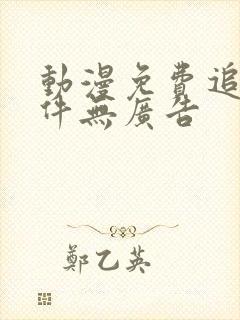 動漫免費追
件無廣告
鄭乙英